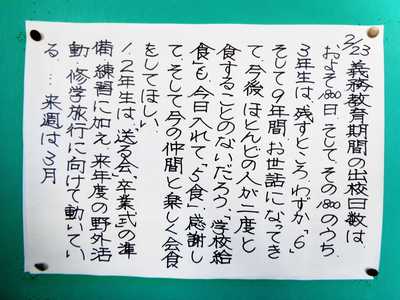 2/23 義務教育期間の出校日数は、
およそ1800日。そして、その1800のうち、
3年生は、残すところ、わずか「6」
そして9年間、お世話になってき
て、今後ほとんどの人が二度と
食することのないだろう、「学校給
食」も、今日入れて、“5食”感謝し
て、そして今の仲間と楽しく会食
をしてほしい。
1、2年生は、送る会、卒業式の準
備・練習に加え、来年度の野外活
動・修学旅行に向けて動いてい
る…来週は3月